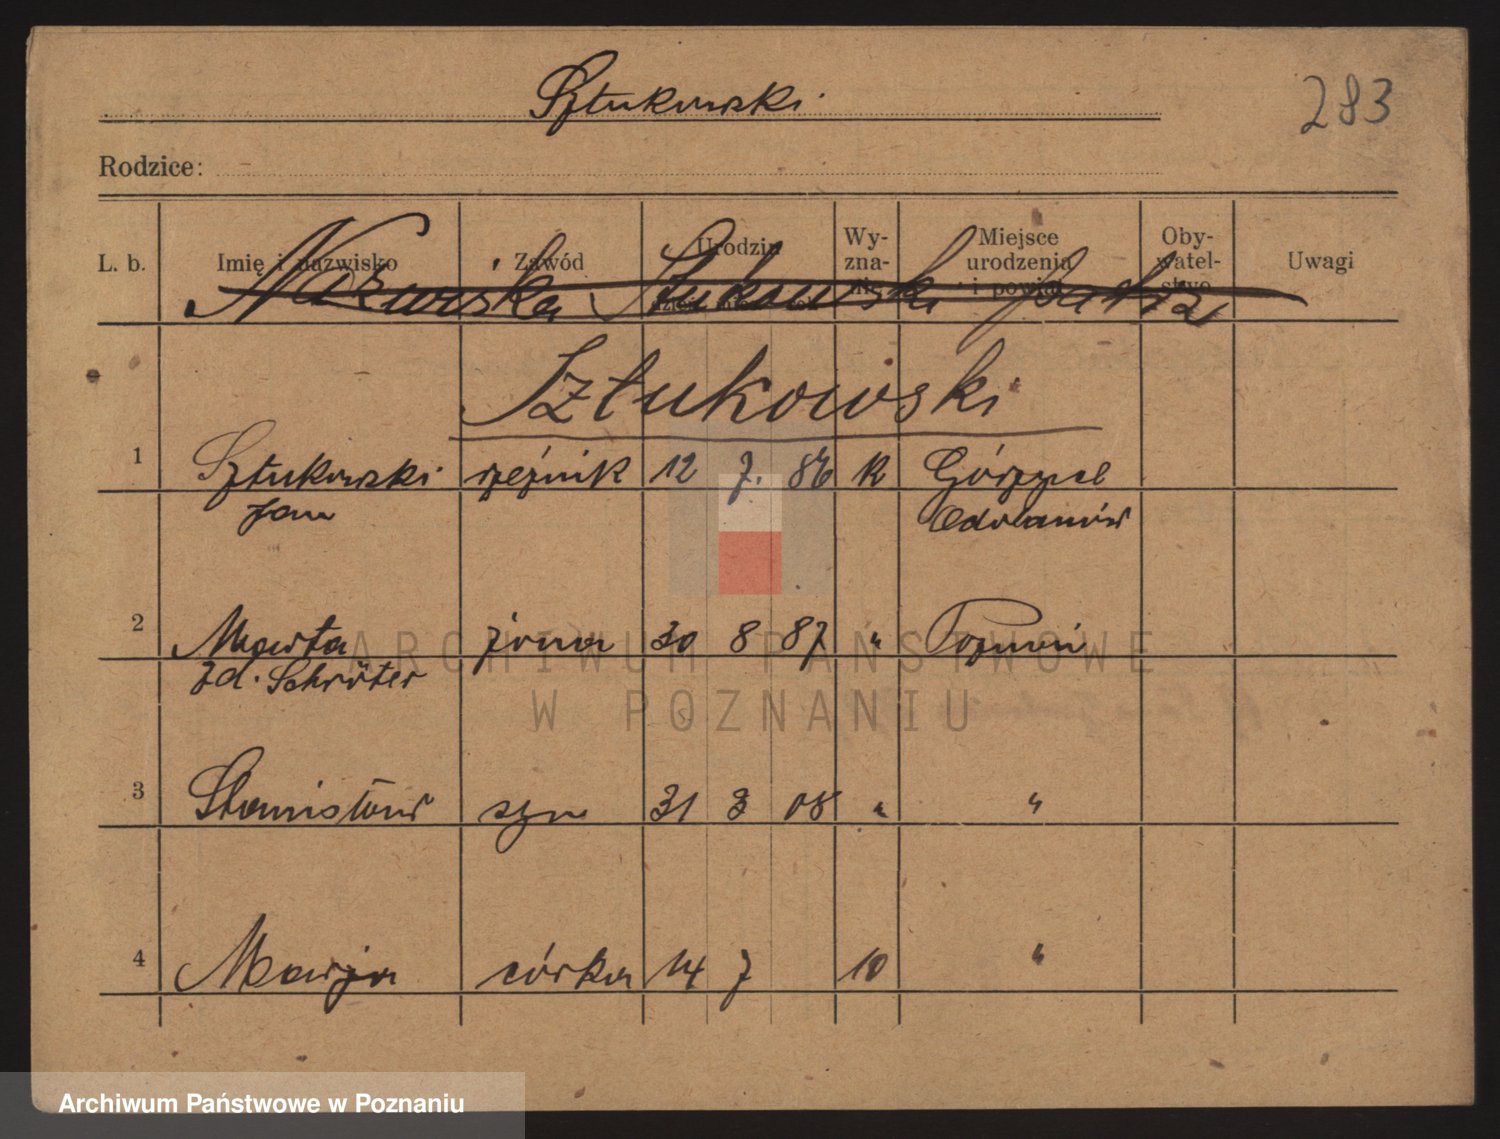 Sztukowski
283
Rodzice:
L. b. Imię i nazwisko Zawód Urodzin Wy-zna-nie Miejsce urodzenia i powiat Oby-watel-stwo Uwagi
Sztukowski
1 Sztukowski rzeźnik 12 7. 86 k
Jan Odolanów
2 Marta żona 30 8 87 " Poznań
zd. Schröter
3 Stanisław syn 31 3 08 " "
4 Marja córka 14 7 10 "
ARCHIWUM PAŃSTWOWE
W POZNANIU
Archiwum Państwowe w Poznaniu